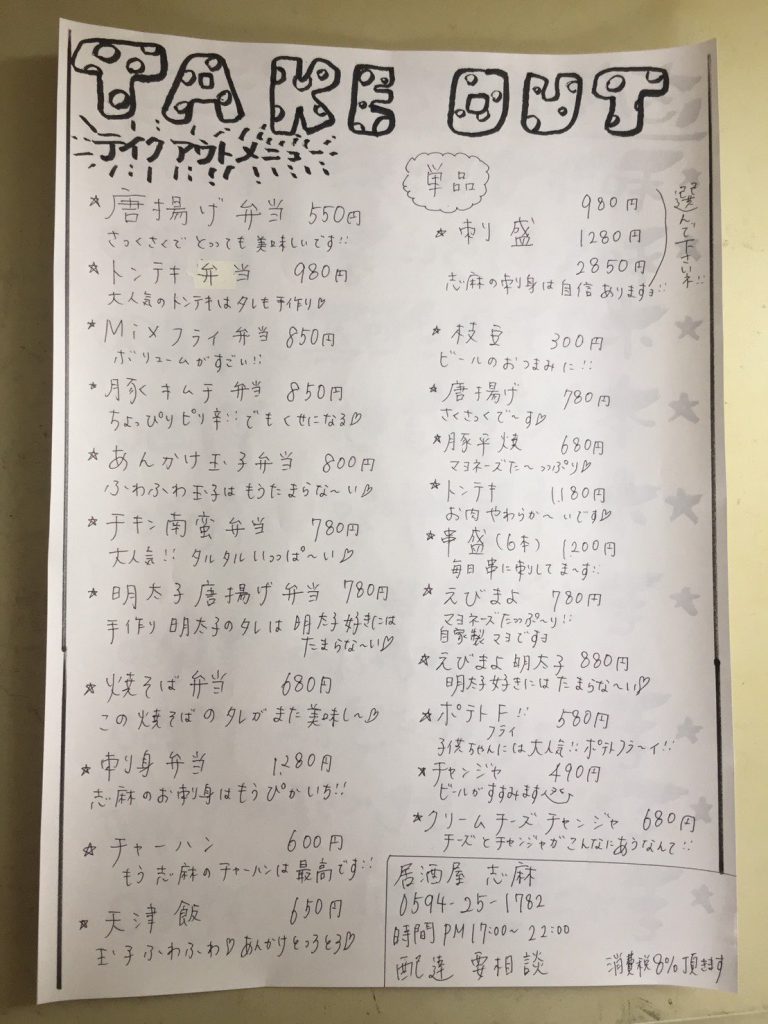 TAKE OUT
テイクアウトメニュー
☆ 唐揚げ 弁当 550円
さっくさくで とっても 美味しいです!!
☆ トンテキ 弁当 980円
大人気のトンテキはタレも手作り♡
☆ Mixフライ弁当 850円
ボリュームがすごい!!
☆ 豚キムチ弁当 850円
ちょっぴりピリ辛!! でも くせになる♡
☆ あんかけ玉子弁当 800円
ふわふわ玉子は もうたまらな〜い♡
☆ チキン南蛮弁当 780円
大人気!! タルタルいっっぱ〜い♡
☆ 明太子唐揚げ弁当 780円
手作り 明太子のタレは 明太子好きには
たまらな〜い♡
☆ 焼そば弁当 680円
この焼そばのタレがまた美味し〜♡
☆ 刺身弁当 1,280円
志麻のお刺身はもうぴかいち!!
☆ チャーハン 600円
もう志麻のチャーハンは最高です!!
☆ 天津飯 650円
玉子ふわふわ♡あんかけとろとろ♡
単品
☆ 刺盛 980円
1280円
2850円
選んで下さいネ!!
志麻の刺身は自信ありますョ!!
☆ 枝豆 300円
ビールのおつまみに!!
☆ 唐揚げ 780円
さくさっくで〜す♡
☆ 豚平焼 680円
マヨネーズた〜っっぷり♡
☆ トンテキ 1,180円
お肉やわらか〜いです♡
☆ 串盛(6本) 1200円
毎日串に刺してま〜す!!
☆ えびまよ 780円
マヨネーズたっっぷ〜り!!
自家製マヨですョ
☆ えびまよ明太子 880円
明太子好きにはたまらな〜い♡
☆ ポテトF!! 580円
フライ
子供ちゃんには大人気!! ポテトフラ〜イ!!
☆ チャンジャ 490円
ビールがすすみます
☆ クリームチーズチャンジャ 680円
チーズとチャンジャがこんなにあうなんて!!
居酒屋 志麻
0594-25-1782
時間 PM17:00〜22:00
配達 要相談 消費税8%頂きます